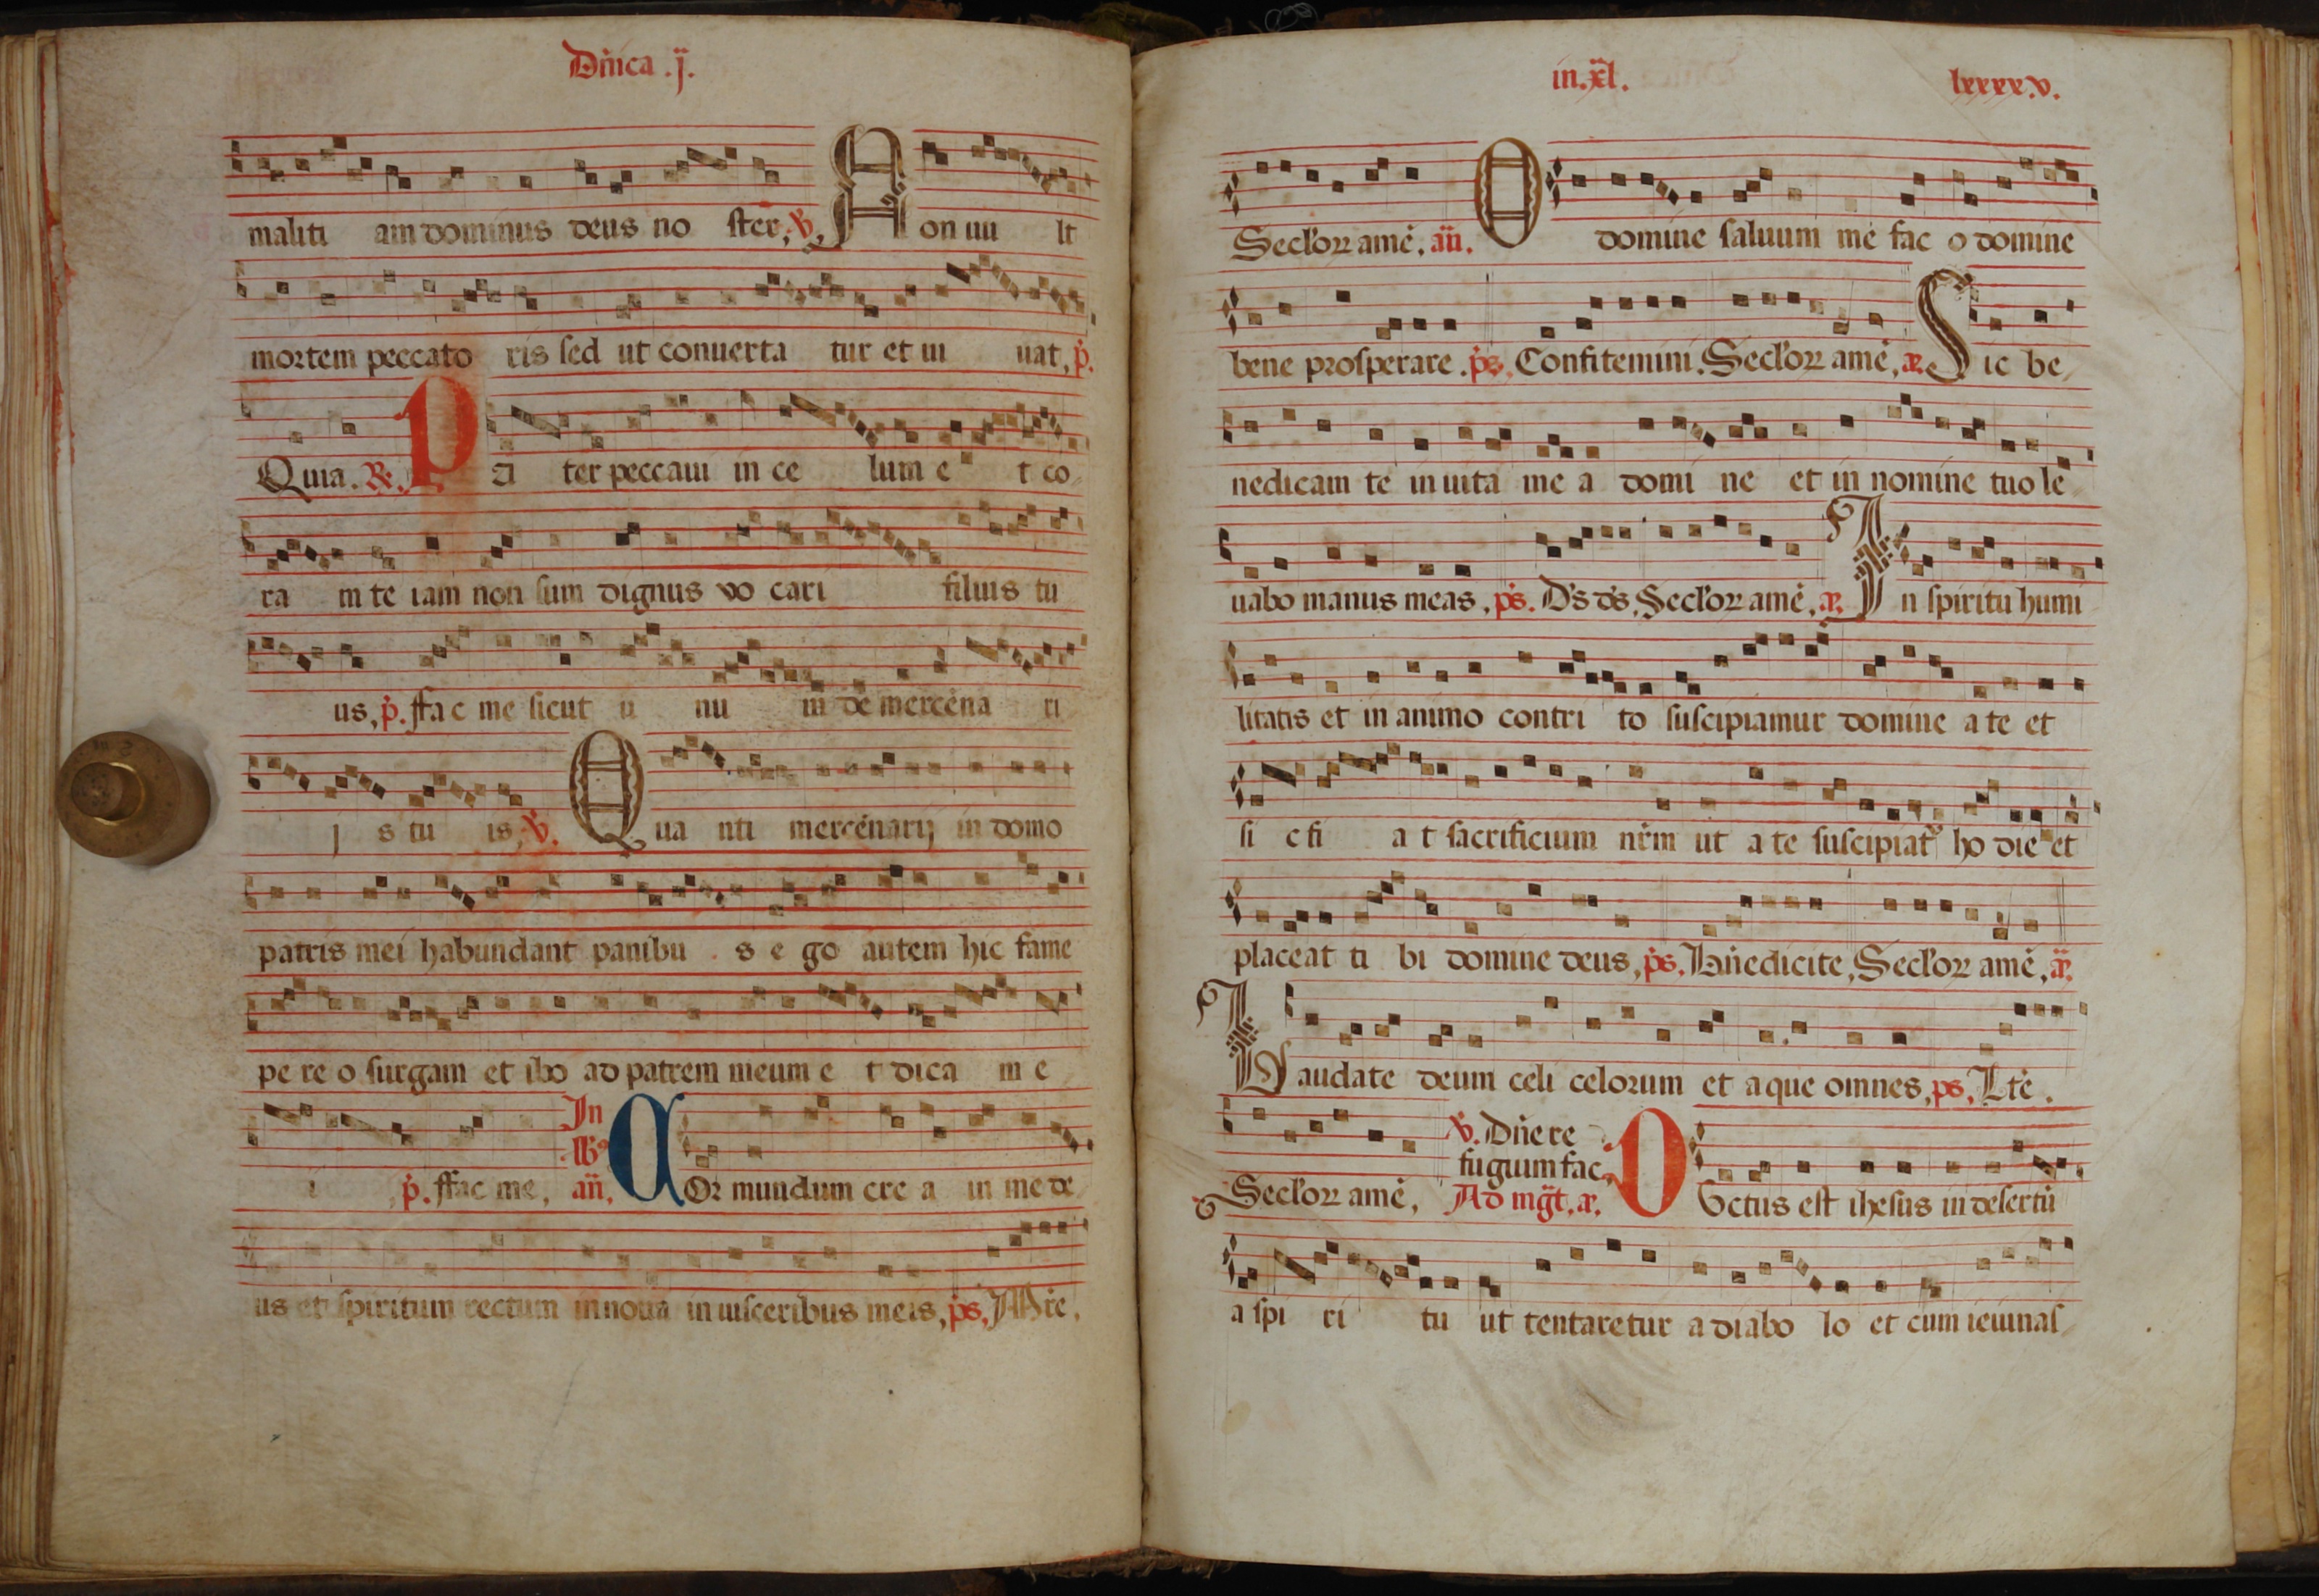 Dñica .j.
maliti am dominus deus no ster, ℣. Non uu lt
mortem peccato ris sed ut conuerta tur et ui uat, p̄.
Quia. ℟. P a ter peccaui in ce lum e t co
ra m te iam non sum dignus vo cari filius tu
us, p̄. ffac me sicut u nu m de mercena ri
j s tu is, ℣. Qua nti mercenarij in domo
patris mei habundant panibu s e go autem hic fame
pe re o surgam et ibo ad patrem meum e t dica m e
i p̄. ffac me, In lb̾ añ. Cor mundum cre a in me de
us et spiritum rectum innoua in uisceribus meis, ps, Mie.
in .xl. lxxxx.v.
Seclorꝝ amē. añ. O domine saluum me fac o domine
bene prosperare. ps. Confitemini. Seclorꝝ amē, æ. Sic be
nedicam te in uita me a domi ne et in nomine tuo le
uabo manus meas, ps. Ds ds, Seclorꝝ amē, æ. In spiritu humi
litatis et in animo contri to suscipiamur domine a te et
si c fi a t sacrificium nr̄m ut a te suscipiat᷑ ho die et
placeat ti bi domine deus, ps. Bn̄edicite, Seclorꝝ amē, æ.
Laudate deum celi celorum et aque omnes, ps, Lte.
Seclorꝝ amē, ℣. Dn̄e re
fugium fac,
Ad mg̅t, æ. Ductus est ihesus in desertū
a spi ri tu ut tentaretur a diabo lo et cum ieiunas